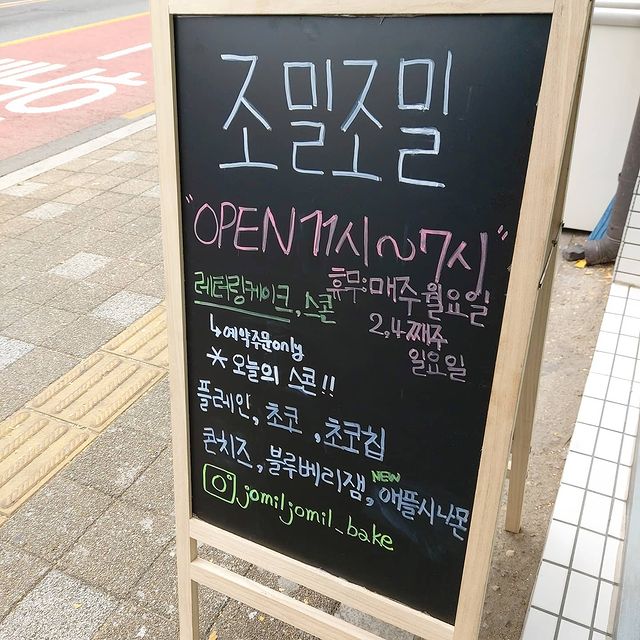 조밀조밀
"OPEN 11시~7시"
레터링케이크, 스콘
휴무:매주 월요일
2,4째주
일요일
↳예약주문only
*오늘의 스콘!!
플레인, 초코, 초코칩
콘치즈, 블루베리잼, NEW 애플시나몬
jomiljomil_bake